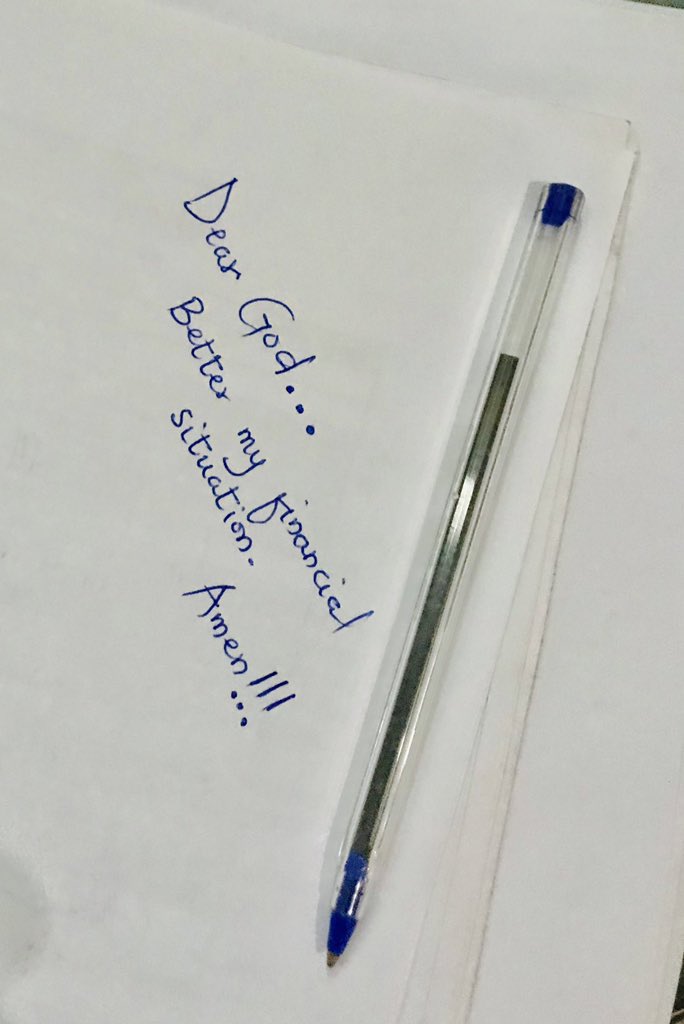 Dear God...
Better my financial
situation.
Amen!!!